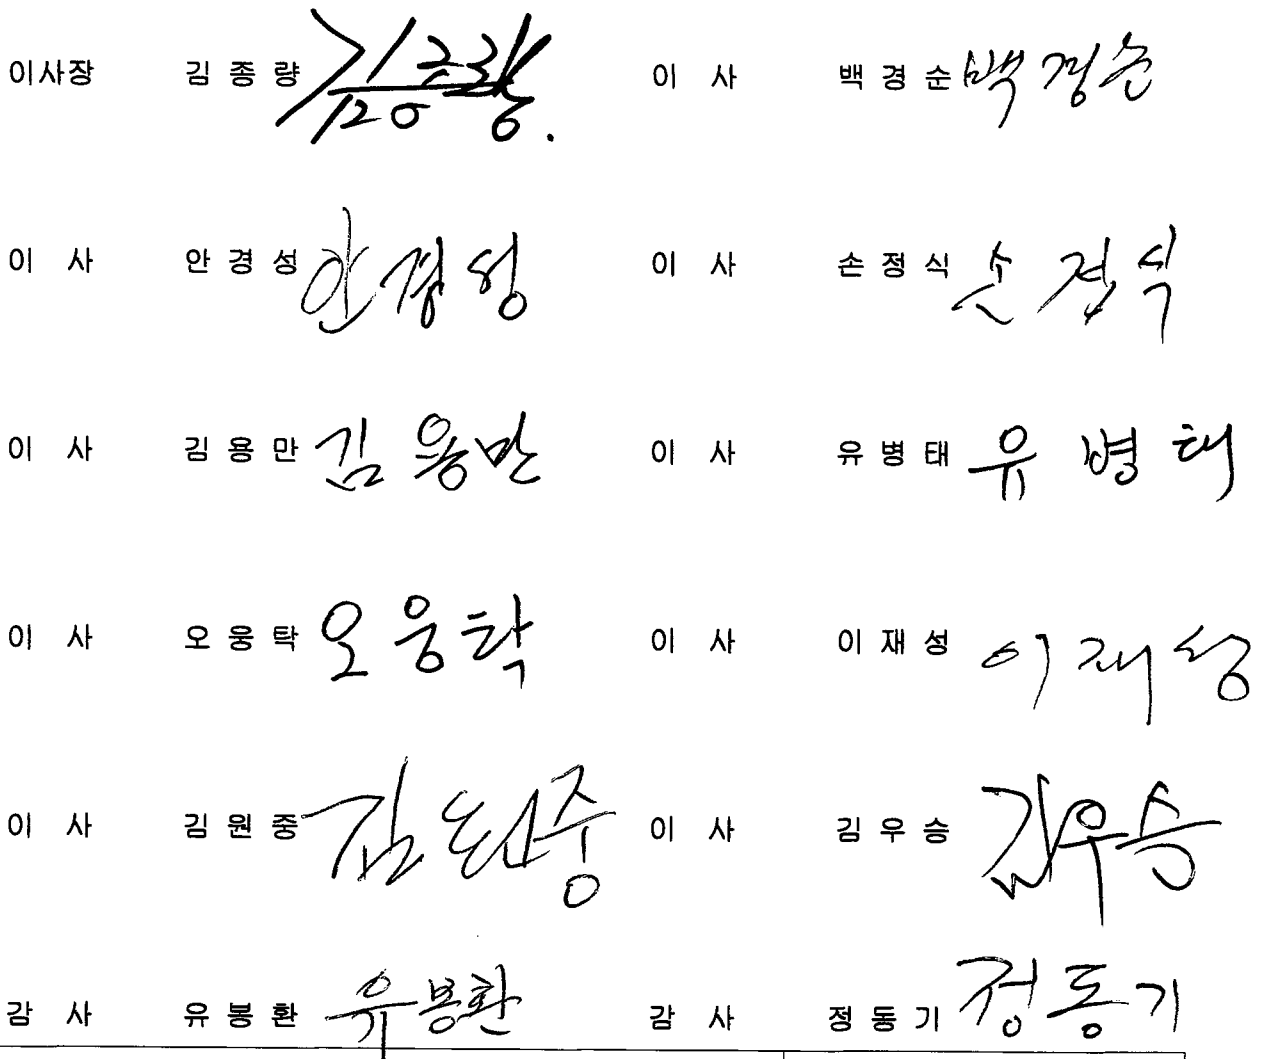 이사장 김종량 김종량 이 사 백경순 백경순
이 사 안경성 안경성 이 사 손정식 손정식
이 사 김용만 김용만 이 사 유병태 유병태
이 사 오웅탁 오웅탁 이 사 이재성 이재성
이 사 김원중 김원중 이 사 김우승 김우승
감 사 유봉환 유봉환 감 사 정동기 정동기